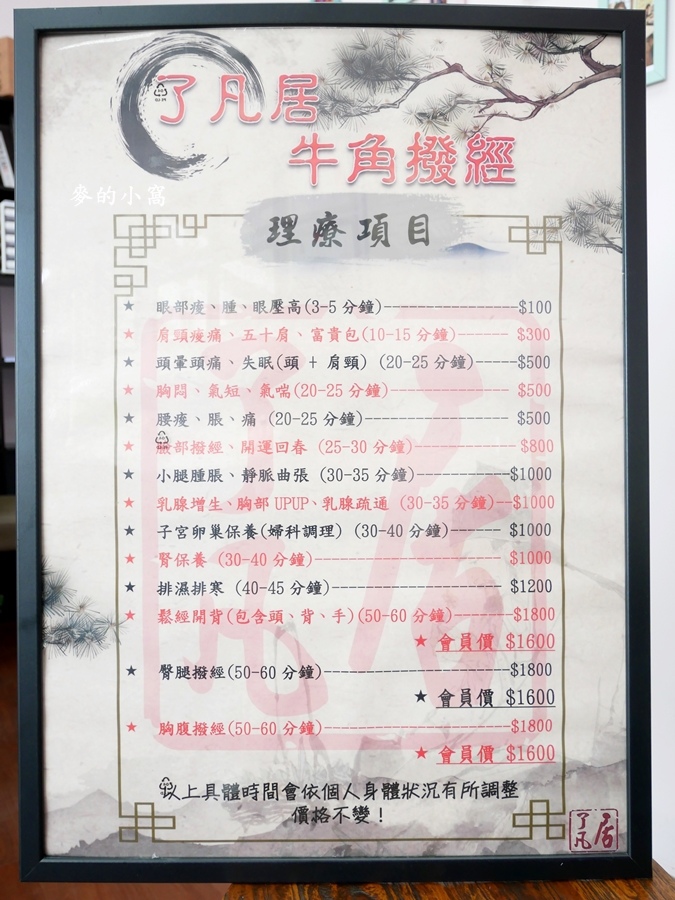 了凡居
牛角撥經
麥的小窩
理療項目
★ 眼部痠、腫、眼壓高(3-5分鐘)------------------$100
★ 肩頸痠痛、五十肩、富貴包(10-15分鐘)------- $300
★ 頭暈頭痛、失眠(頭 + 肩頸) (20-25分鐘)-----$500
★ 胸悶、氣短、氣喘(20-25分鐘)---------------- $500
★ 腰痠、脹、痛 (20-25分鐘)--------------------$500
★ 臉部撥經、開運回春 (25-30分鐘)-------------- $800
★ 小腿腫脹、靜脈曲張 (30-35分鐘)-------------$1000
★ 乳腺增生、胸部UPUP、乳腺疏通 (30-35分鐘)--$1000
★ 子宮卵巢保養(婦科調理) (30-40分鐘)------- $1000
★ 腎保養 (30-40分鐘)------------------------- $1000
★ 排濕排寒 (40-45分鐘)----------------------- $1200
★ 鬆經開背(包含頭、背、手)(50-60分鐘)--------$1800
★ 會員價 $1600
★ 臀腿撥經(50-60分鐘)-------------------------$1800
★ 會員價 $1600
★ 胸腹撥經(50-60分鐘)-------------------------$1800
★ 會員價 $1600
以上具體時間會依個人身體狀況有所調整
價格不變！
了凡居